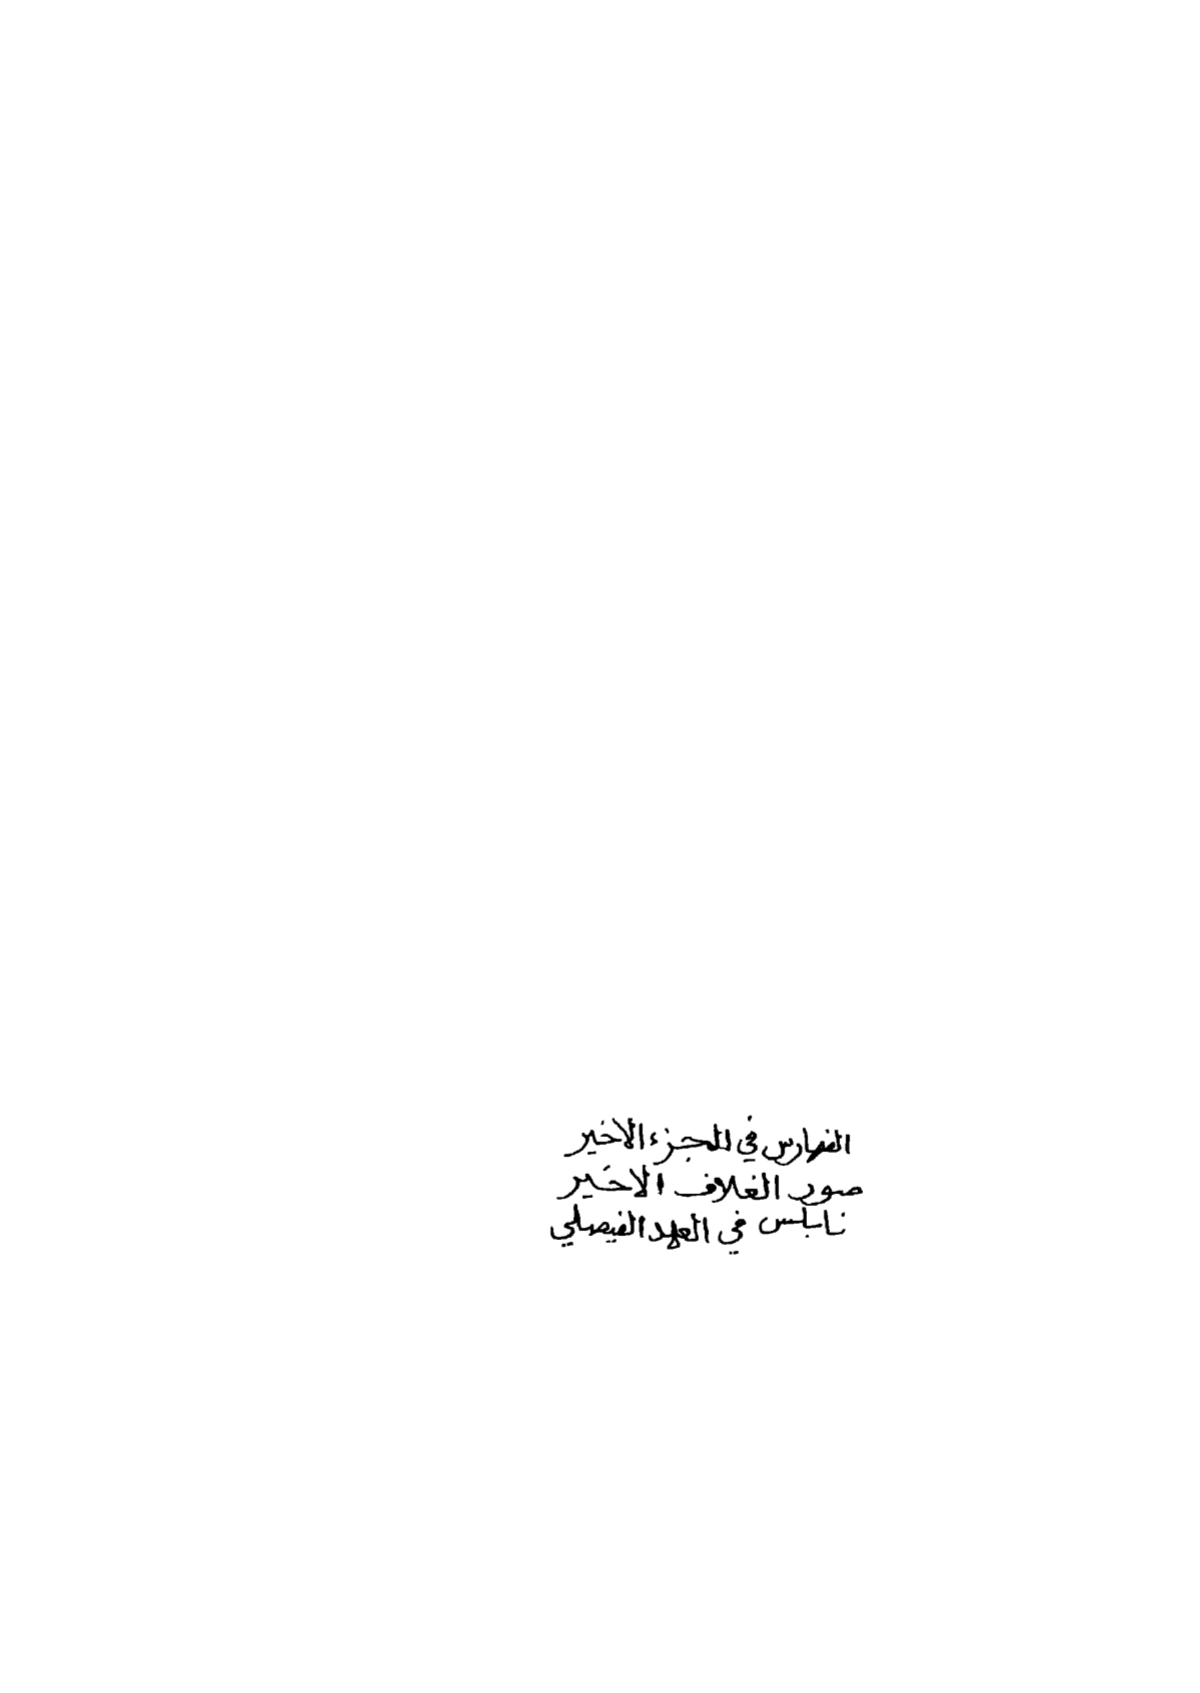 الفهارس في الجزء الاخير
صور الغلاف الاخير
نابلس في العهد الفيصلي